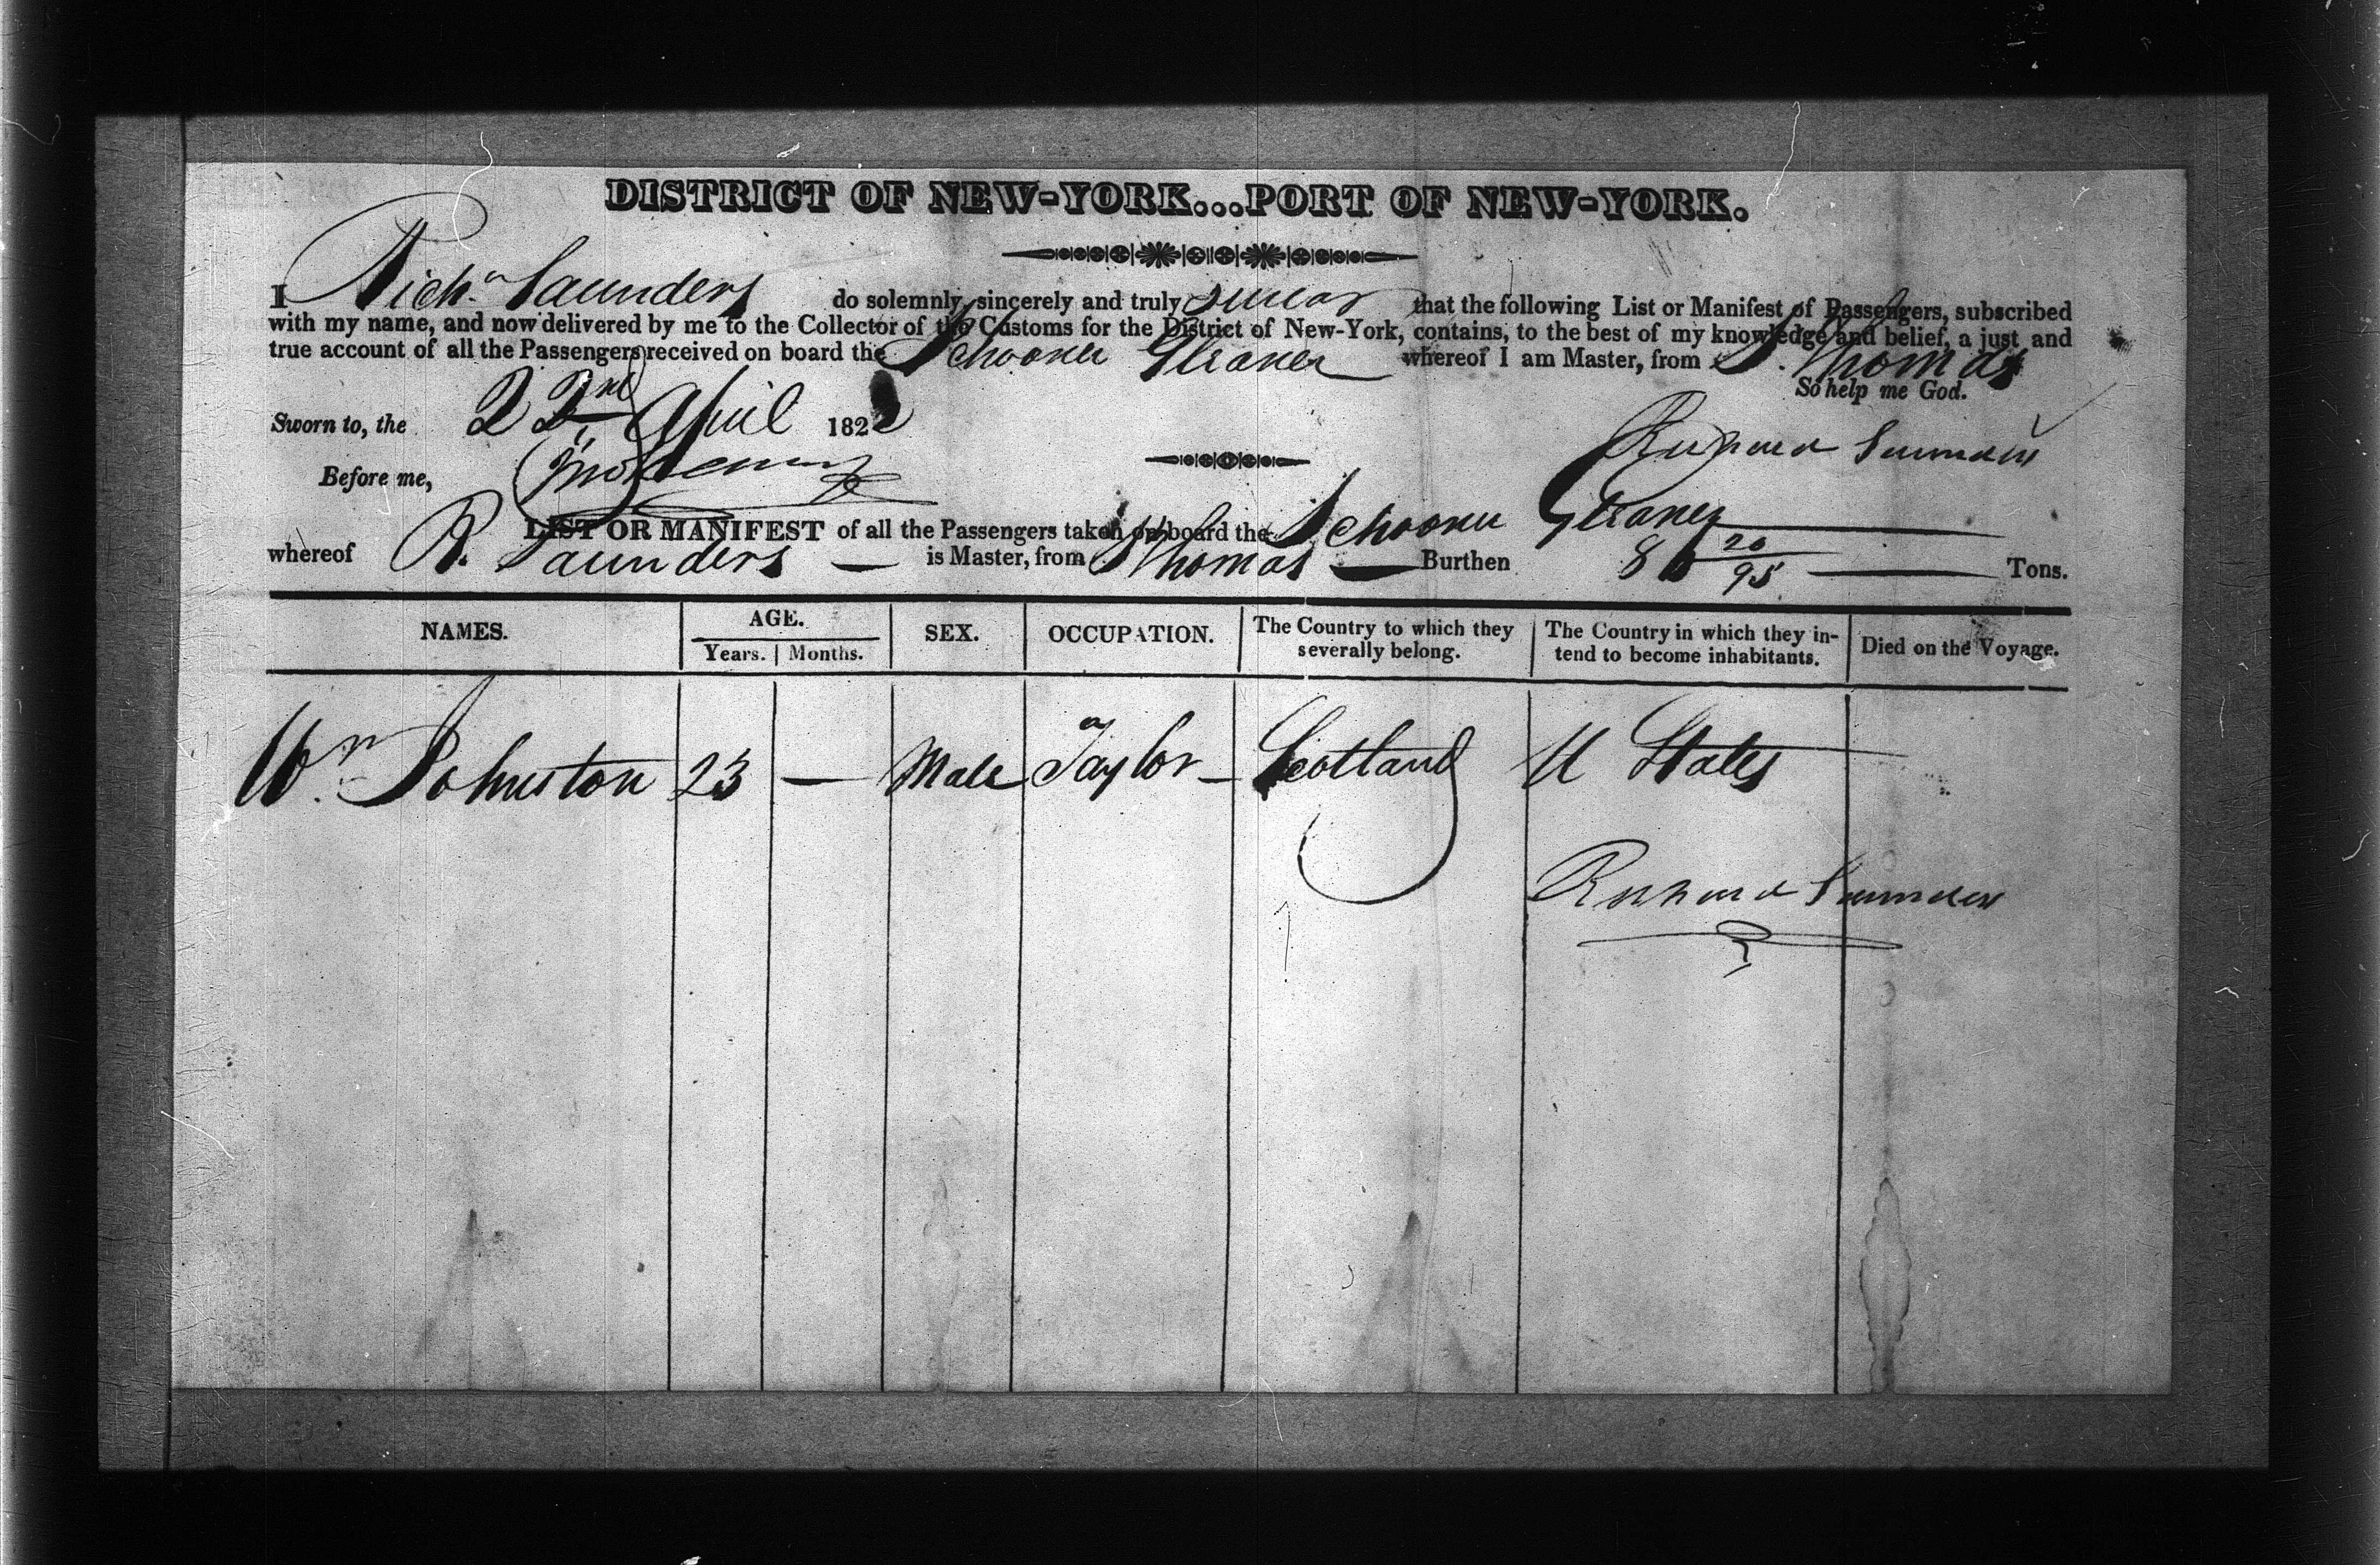 DISTRICT OF NEW-YORK...PORT OF NEW-YORK.
I Richd Saunders do solemnly, sincerely and truly swear that the following List or Manifest of Passengers, subscribed
with my name, and now delivered by me to the Collector of the Customs for the District of New-York, contains, to the best of my knowledge and belief, a just and
true account of all the Passengers received on board the Schooner Gleaner whereof I am Master, from St. Thomas
So help me God.
Sworn to, the 22nd April 182
Richard Saunders
Before me,
LIST OR MANIFEST of all the Passengers taken on board the Schooner Gleaner
whereof R. Saunders — is Master, from St Thomas — Burthen 20/95 — Tons.
NAMES. AGE. SEX. OCCUPATION. The Country to which they severally belong. The Country in which they intend to become inhabitants. Died on the Voyage.
Years. Months.
Wm Johnston 23 — Male Taylor — Scotland U States
Richard Saunders